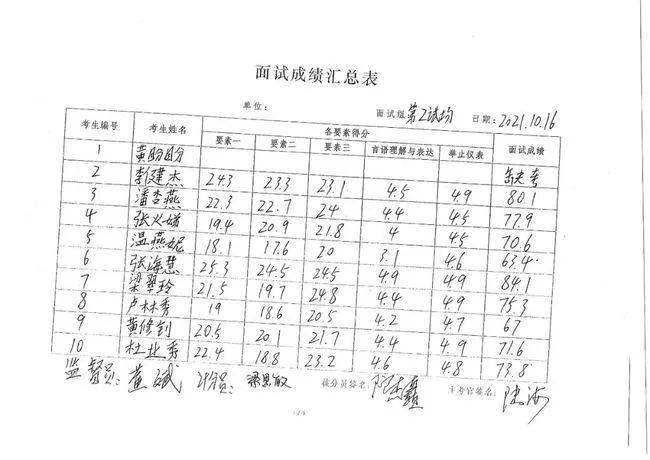 面试成绩汇总表
单位: 面试组 第2试场 日期: 2021.10.16
考生编号 考生姓名 各要素得分 面试成绩
要素一 要素二 要素三 言语理解与表达 举止仪表
1 黄盼盼 缺考
2 李建杰 24.3 23.3 23.1 4.5 4.9 80.1
3 潘杏燕 22.3 22.7 24 4.4 4.5 77.9
4 张义 19.4 20.9 21.8 4 4.5 70.6
5 温燕妮 18.1 17.6 20 3.1 4.6 63.4
6 张海慧 25.3 24.5 24.5 4.9 4.9 84.1
7 梁翠玲 21.5 19.7 24.8 4.4 4.9 75.3
8 卢林秀 19 18.6 20.5 4.2 4.7 67
9 黄修钊 20.5 20.1 21.7 4.4 4.9 71.6
10 杜北秀 22.4 18.8 23.2 4.6 4.8 73.8
监督员: 董斌 计分员: 梁思敏 核分员签名: 主考官签名: 陈海